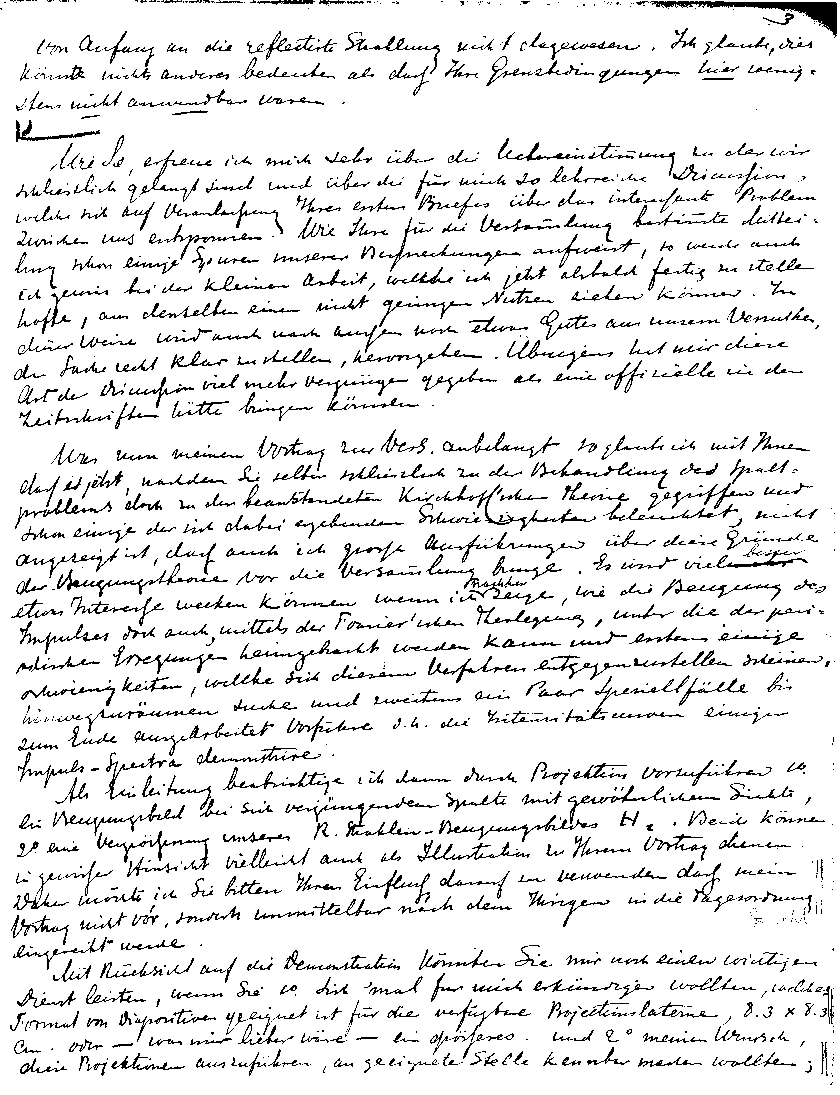 3
von Anfang an die reflectirte Strallung nicht dagewesen. Ich glaube, dies
könnte nichts anderes bedeuten als daß Ihre Grenzbedingungen hier wenig-
stens nicht anwendbar waren.
erfreue ich mich sehr über die Uebereinstimmung zu der wir
schliesslich gelangt sind und über die für mich so lehrreiche Discussion,
welche sich auf Veranlaßung Ihres ersten Briefes über das interessante Problem
zwischen uns entsponnen. Wie Ihre für die Versammlung bestimmte Mittei-
lung schon einige Spuren unserer Besprechungen aufweist, so werde auch
ich gewiss bei der kleinen Arbeit, welche ich jetzt alsbald fertig zu stellen
hoffe, aus denselben einen nicht geringen Nutzen ziehen können. In
dieser Weise wird auch nach außen noch etwas Gutes aus unserm Versuche,
die Sache recht klar zu stellen, hervorgehen. Übrigens hat mir diese
Art der Discussion viel mehr Vergnügen gegeben als eine officielle in den
Zeitschriften hätte bringen können.
Was nun meinen Vortrag zur Vers. anbelangt so glaube ich mit Ihnen
daß es jetzt, nachdem Sie selber schliesslich zu der Behandlung des Spalt-
problems doch zu der beanstandeten Kirchhoff'schen Theorie gegriffen und
schon einige der sich dabei ergebenden Schwierigkeiten beleuchtet, nicht
angezeigt ist, daß auch ich große Ausführungen über diese Gründe
der Beugungstheorie vor die Versammlung bringe. Es wird viel besser
etwas Interesse wecken können wenn ich zeige, wie die Beugung des
Impulses doch auch, mittels der Fourier'schen Zerlegung, unter die der peri-
odischen Erregungen heimgebracht werden kann und erstens einige
Schwierigkeiten, welche sich diesem Verfahren entgegenzustellen scheinen,
hinwegzuräumen suche und zweitens ein Paar Speziellfälle bis
zum Ende ausgearbeitet vorführe d.h. die Intensitätscurven einiger
Impuls-Spectra demonstrire.
Als Einleitung beabsichtige ich dann durch Projektion vorzuführen 1o.
ein Beugungsbild bei sich verjüngendem Spalte mit gewöhnlichem Lichte,
2o eine Vergrößerung unseres R. Strahlen-Beugungsbildes H2. Beide können
in gewißer Hinsicht vielleicht auch als Illustration zu Ihrem Vortrag dienen.
Daher möchte ich Sie bitten Ihren Einfluß darauf zu verwenden daß mein
Vortrag nicht vor, sondern unmittelbar nach dem Ihrigen in die Tagesordnung
eingereiht werde.
Mit Rücksicht auf die Demonstration könnten Sie mir noch einen wichtigen
Dienst leisten, wenn Sie 1o. sich 'mal für mich erkündigen wollten, welches
Format von Diapositiven geeignet ist für die verfügbare Projectionslaterne, 8.3 x 8.3
cm. oder — was mir lieber wäre — ein größeres. und 2o meinen Wunsch,
diese Projektionen auszuführen, an geeignete Stelle kennbar machen wollten;